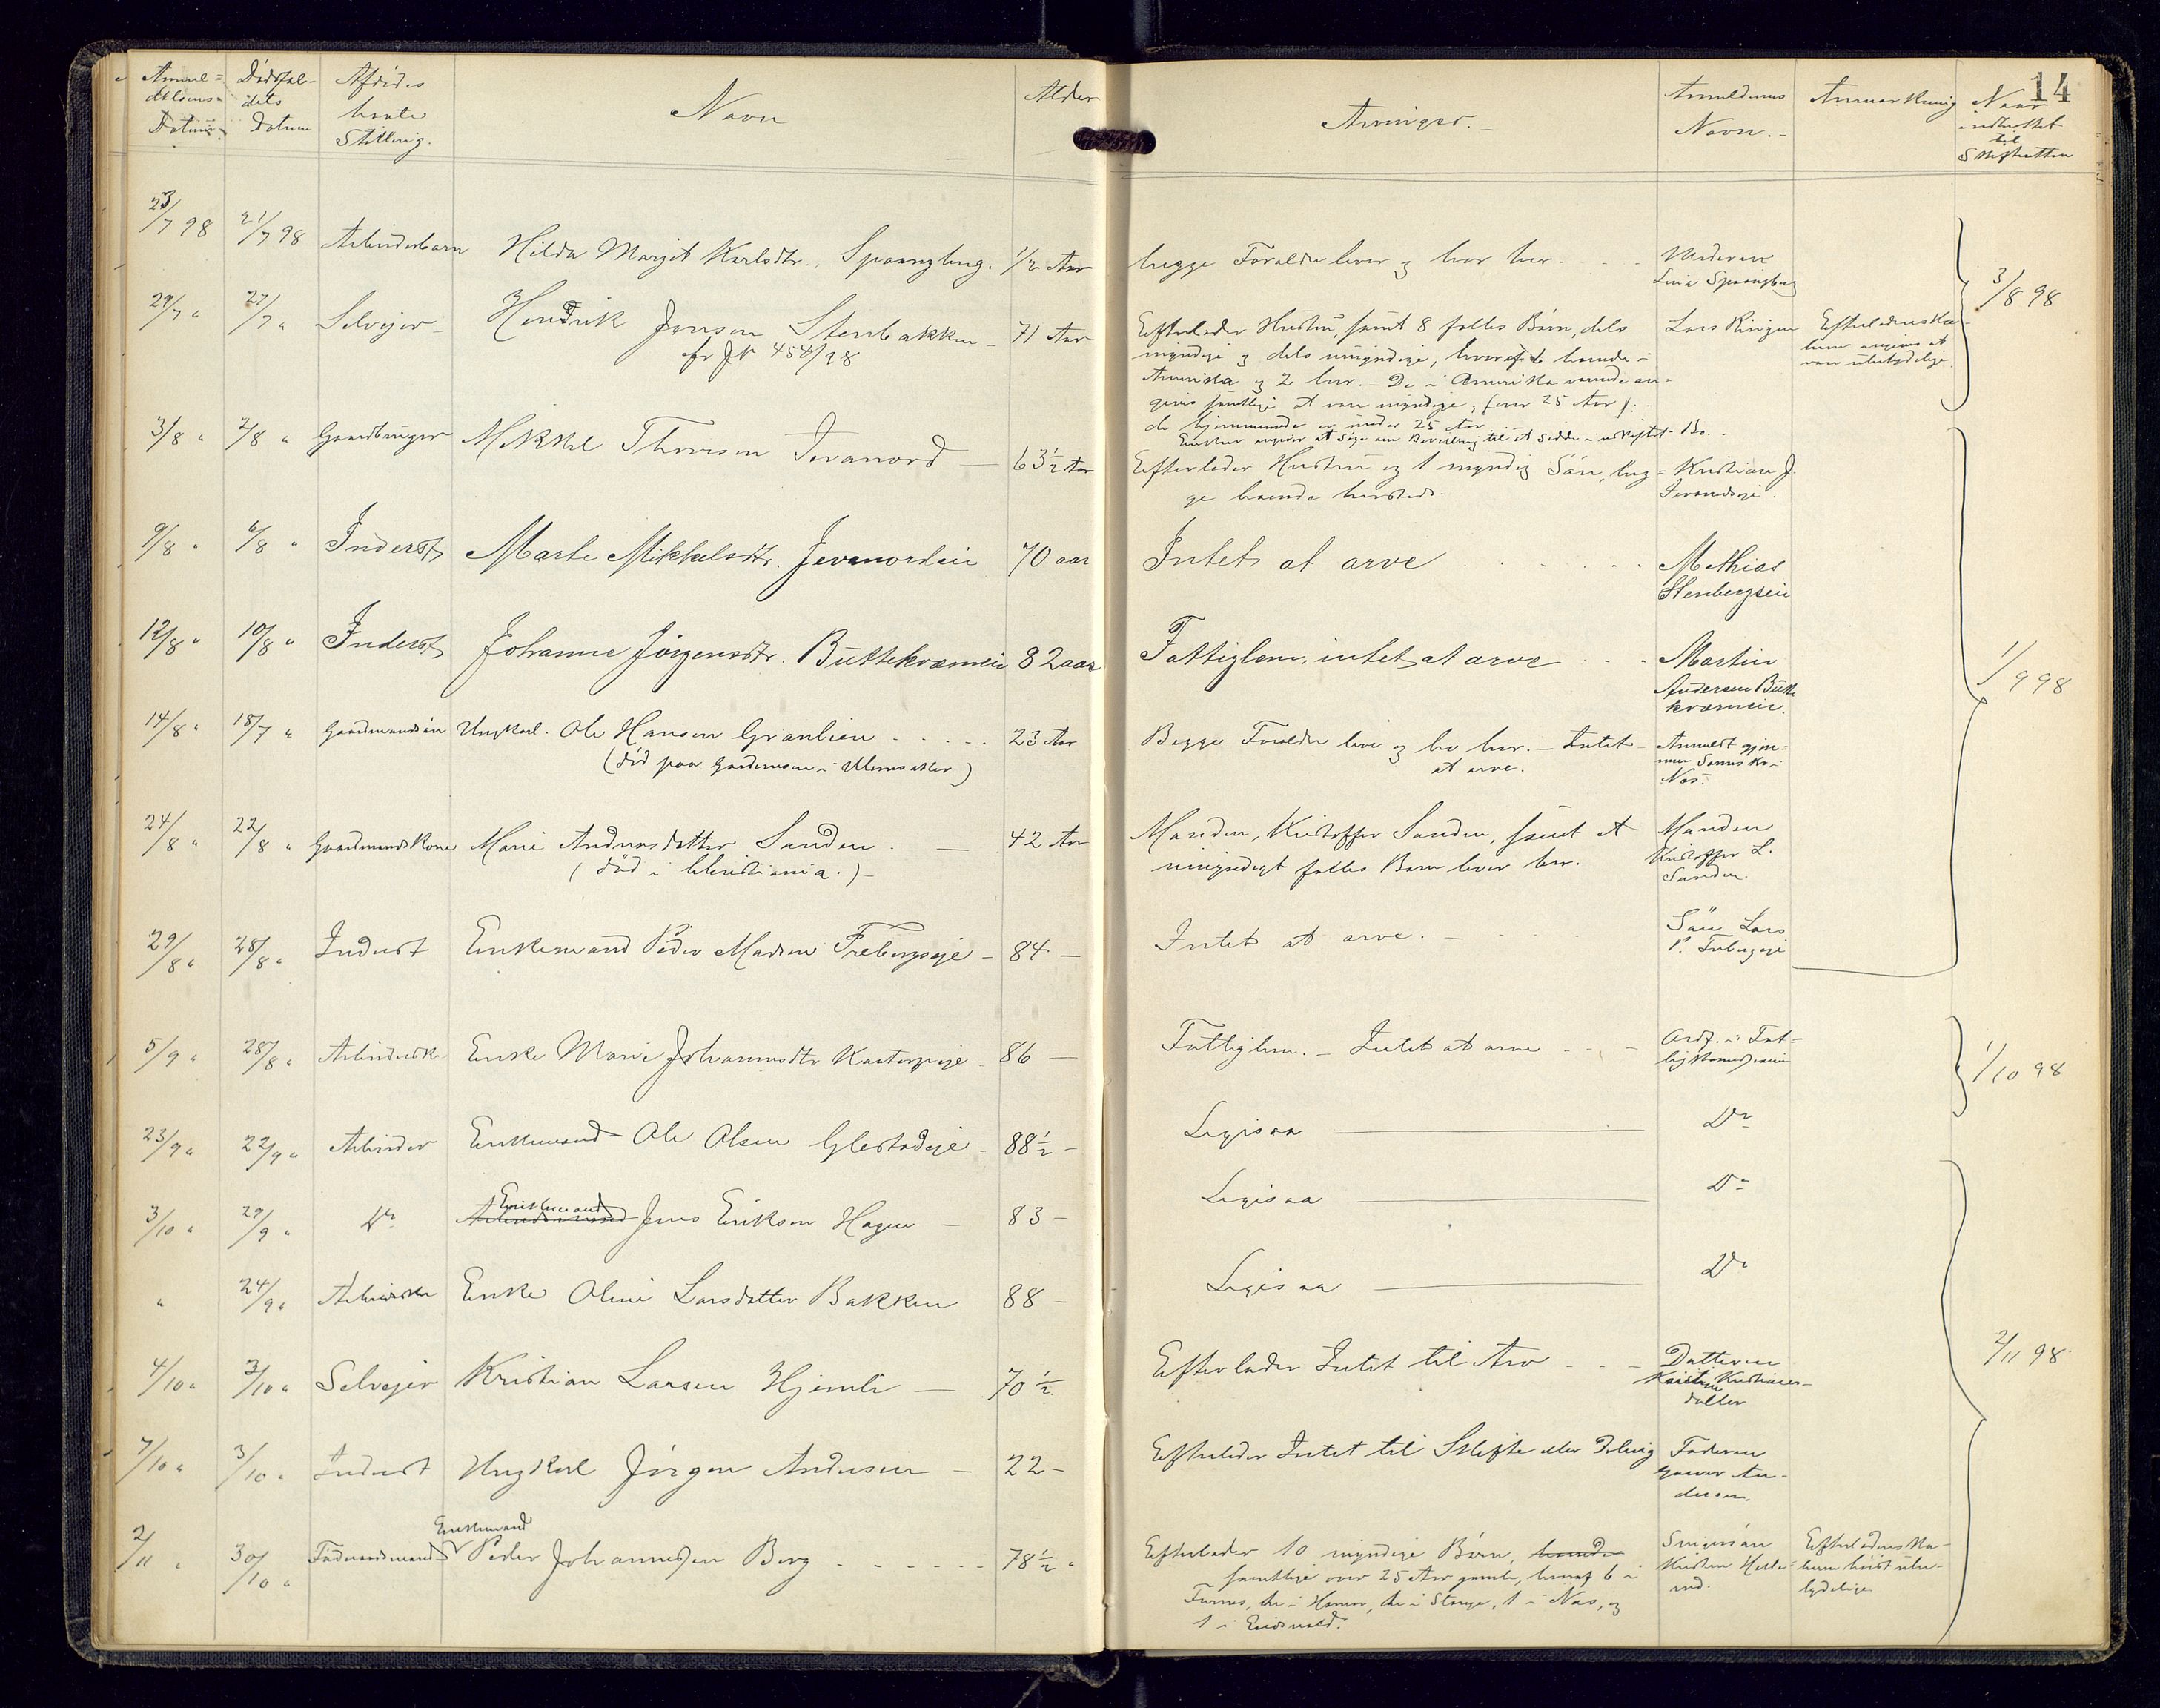 Anmel-
delsens
Datum.
Dødsfal-
dets
Datum
Afdødes
borte
Stilling.
Navn
Alder
Arvinger.
Anmelderens
Navn.
Anmærkning
Naar
indberettet
til
Skifteretten
14
23/7 98 21/7 98 Arbeiderbarn Hilda Margit Karlsdtr. Spaangberg. 1/2 Aar
begge Forældre lever og bor her. Moderen
Lina Spaangberg
3/8 98
29/7 " 27/7 " Selvejer Hendrik Jensen Stenbakken 71 Aar
cfr JN 454/98
Efterlader Hustru, samt 8 fælles Børn, dels Lars Ringen
myndige og dels umyndige, hvoraf 6 boende i
Amerika og 2 her. - De i Amerika værende an-
gives samtlige at være myndige, (over 25 Aar):
de hjemmeværende er under 25 Aar.
Enken angiver at søge om Bevilling til at sidde i uskiftet Bo.
Efterladenska-
berne angives at
være ubetydelige.
3/8 " 2/8 " Gaardbruger Mikkel Thorsen Jevanord 63 1/2 Aar
Efterlader Hustru og 1 myndig Søn, beg- Kristian J.
ge boende hersteds. Jevanordseje.
9/8 " 6/8 " Inderst Marte Mikkelsdtr. Jevanordeie 70 aar
Intet at arve Mathias
Stenbergseie
12/8 " 10/8 " Inderst Johanne Jörgensdtr. Buttekværneie 82 aar
Fattiglem, intet at arve Martin
Andersen Butte
kværneie.
1/9 98
14/8 " 18/7 " Gaardmandssøn Ungkarl. Ole Hansen Granlien 23 Aar
(død paa Gardermoen i Ullensaker)
Begge Forældre lever og bor her. - Intet Anmeldt gjen-
at arve. nem Sorenskr. i
Næs.
24/8 " 22/8 " Gaardmandskone Marie Andersdatter Sanden 42 Aar
(död i Christiania.)
Manden, Kristoffer Sanden, samt et Manden
umyndigt fælles Barn lever her. Kristoffer L.
Sanden.
29/8 " 28/8 " Inderst Enkemand Peder Madsen Frebergseje 84
Intet at arve. Søn Lars
P. Frebergseje
5/9 " 28/8 " Arbeiderske Enke Marie Johannesdtr 86
Fattiglem. - Intet at arve Ordf. i Fat-
tigkommissionen
1/10 98
23/9 " 22/9 " Arbeider Enkemand Ole Olsen Glestadeje 88 1/2
Ligesaa Do
3/10 " 29/9 " Do Enkemand Jens Eriksen Hagen 83
Ligesaa Do
" 24/9 " Arbeiderske Enke Oline Larsdatter Bakken 88
Ligesaa Do
4/10 " 3/10 " Selvejer Kristian Larsen Hjemli 70 1/2
Efterlader Intet til Arv Datteren
Kristians-
datter
2/11 98
7/10 " 3/10 " Inderst Ungkarl Jörgen Andersen 22
Efterlader Intet til Skifte eller Deling Faderen
An-
dersen.
2/11 " 30/10 " Föderaadsmand Enkemand Peder Johannessen Berg 78 1/2 "
Efterlader 10 myndige Börn, boende Svigersøn
samtlige over 25 Aar gamle, hvoraf 6 i
Furnes, en i Hamar, en i Stange, 1 i Næs, og
1 i Eidsvold.
Efterladenska-
berne høist ube-
tydelige